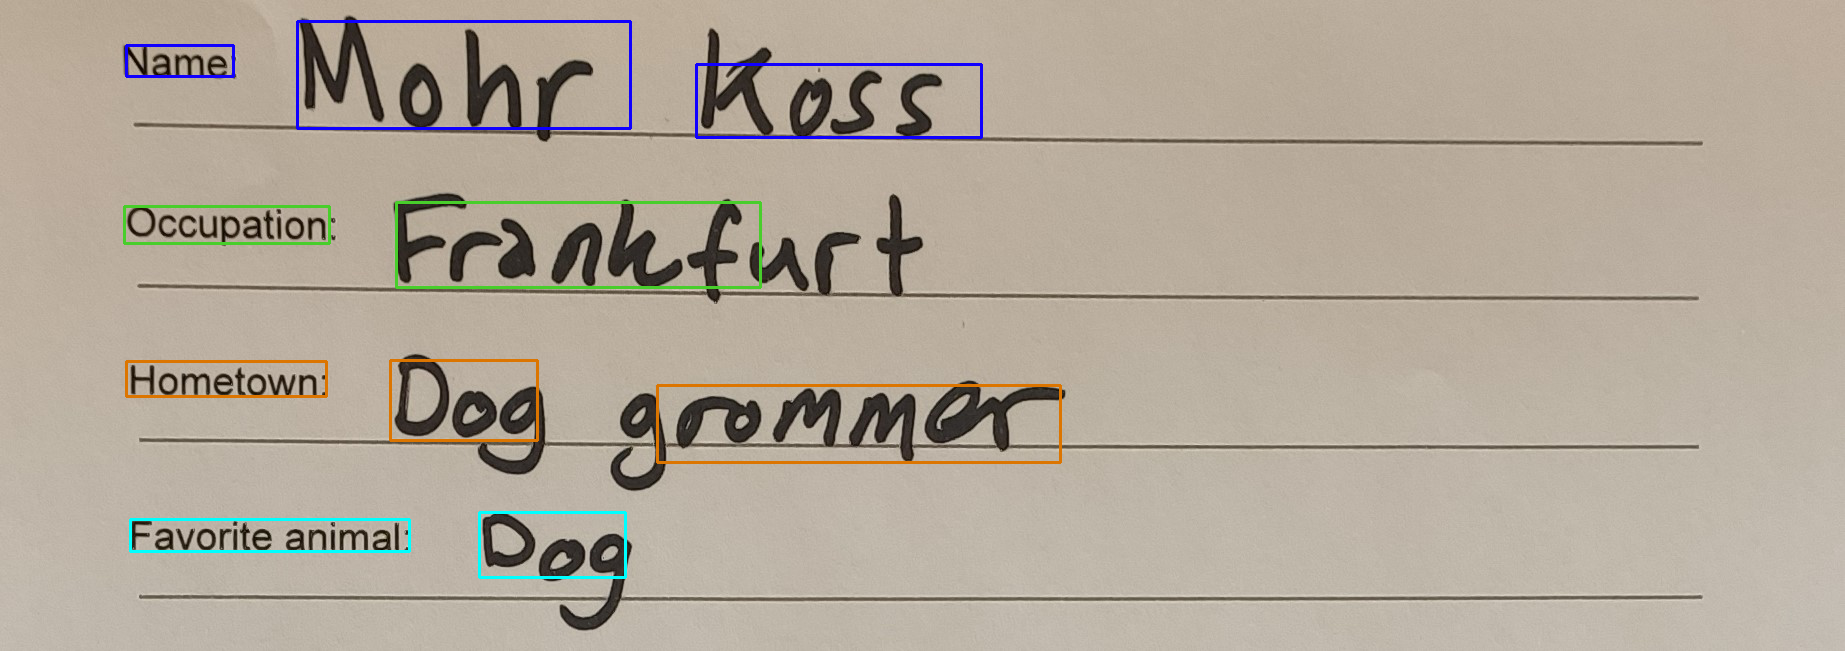 Name: Mohr Koss
Occupation: Frankfurt
Hometown: Dog grommer
Favorite animal: Dog